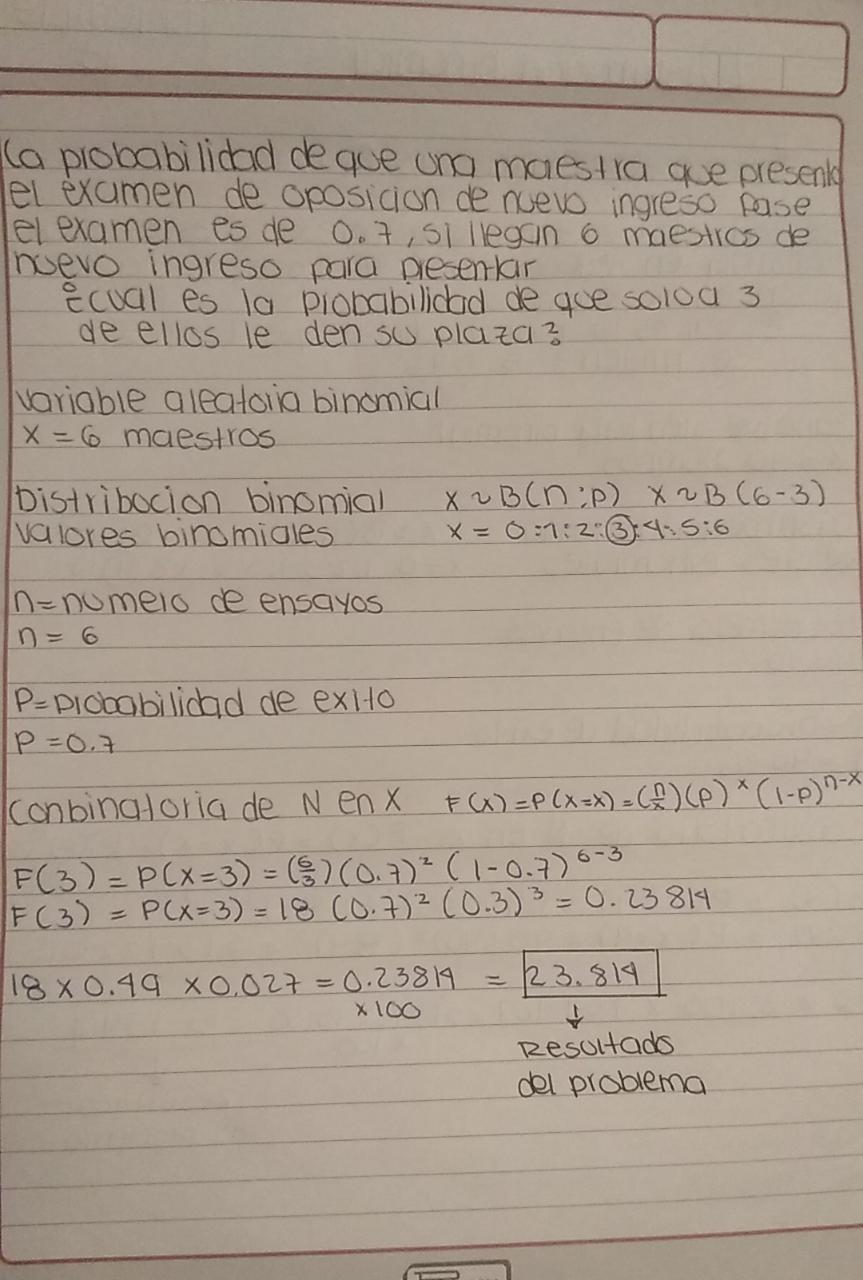 La probabilidad de que una maestra que presenta
el examen de oposicion de nuevo ingreso pase
el examen es de 0.7, si llegan 6 maestros de
nuevo ingreso para presentar
¿cual es la probabilidad de que solo a 3
de ellos le den su plaza?
variable aleatoria binomial
x = 6 maestros
Distribucion binomial x ~ B(n;p) x ~ B(6-3)
valores binomiales x = 0:1:2:3:4:5:6
n = numero de ensayos
n = 6
P = probabilidad de exito
P = 0.7
Conbinatoria de N en X F(x) = P(x=x) = (n/x)(p)^x (1-p)^n-x
F(3) = P(x=3) = (6/3)(0.7)² (1-0.7)^6-3
F(3) = P(x=3) = 18 (0.7)² (0.3)³ = 0.23814
18 x 0.49 x 0.027 = 0.23814 = 23.814
x100
Resultado
del problema